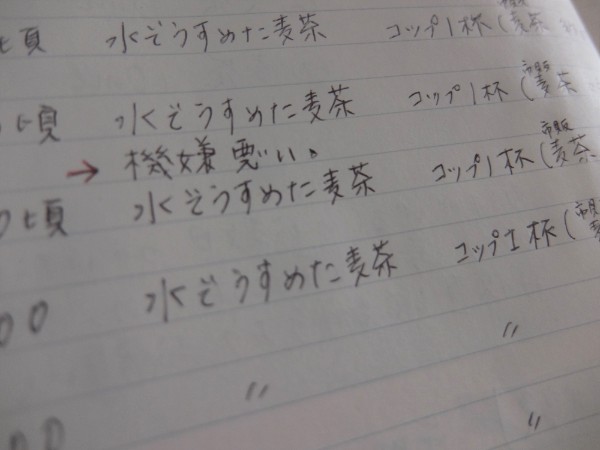 頃 水でうすめた麦茶 コップ1杯(市販 麦茶
頃 水でうすめた麦茶 コップ1杯(市販 麦茶
→ 機嫌悪い。
頃 水でうすめた麦茶 コップ1杯(市販 麦茶
00 水でうすめた麦茶 コップ1杯(市販
〃 〃
00 〃